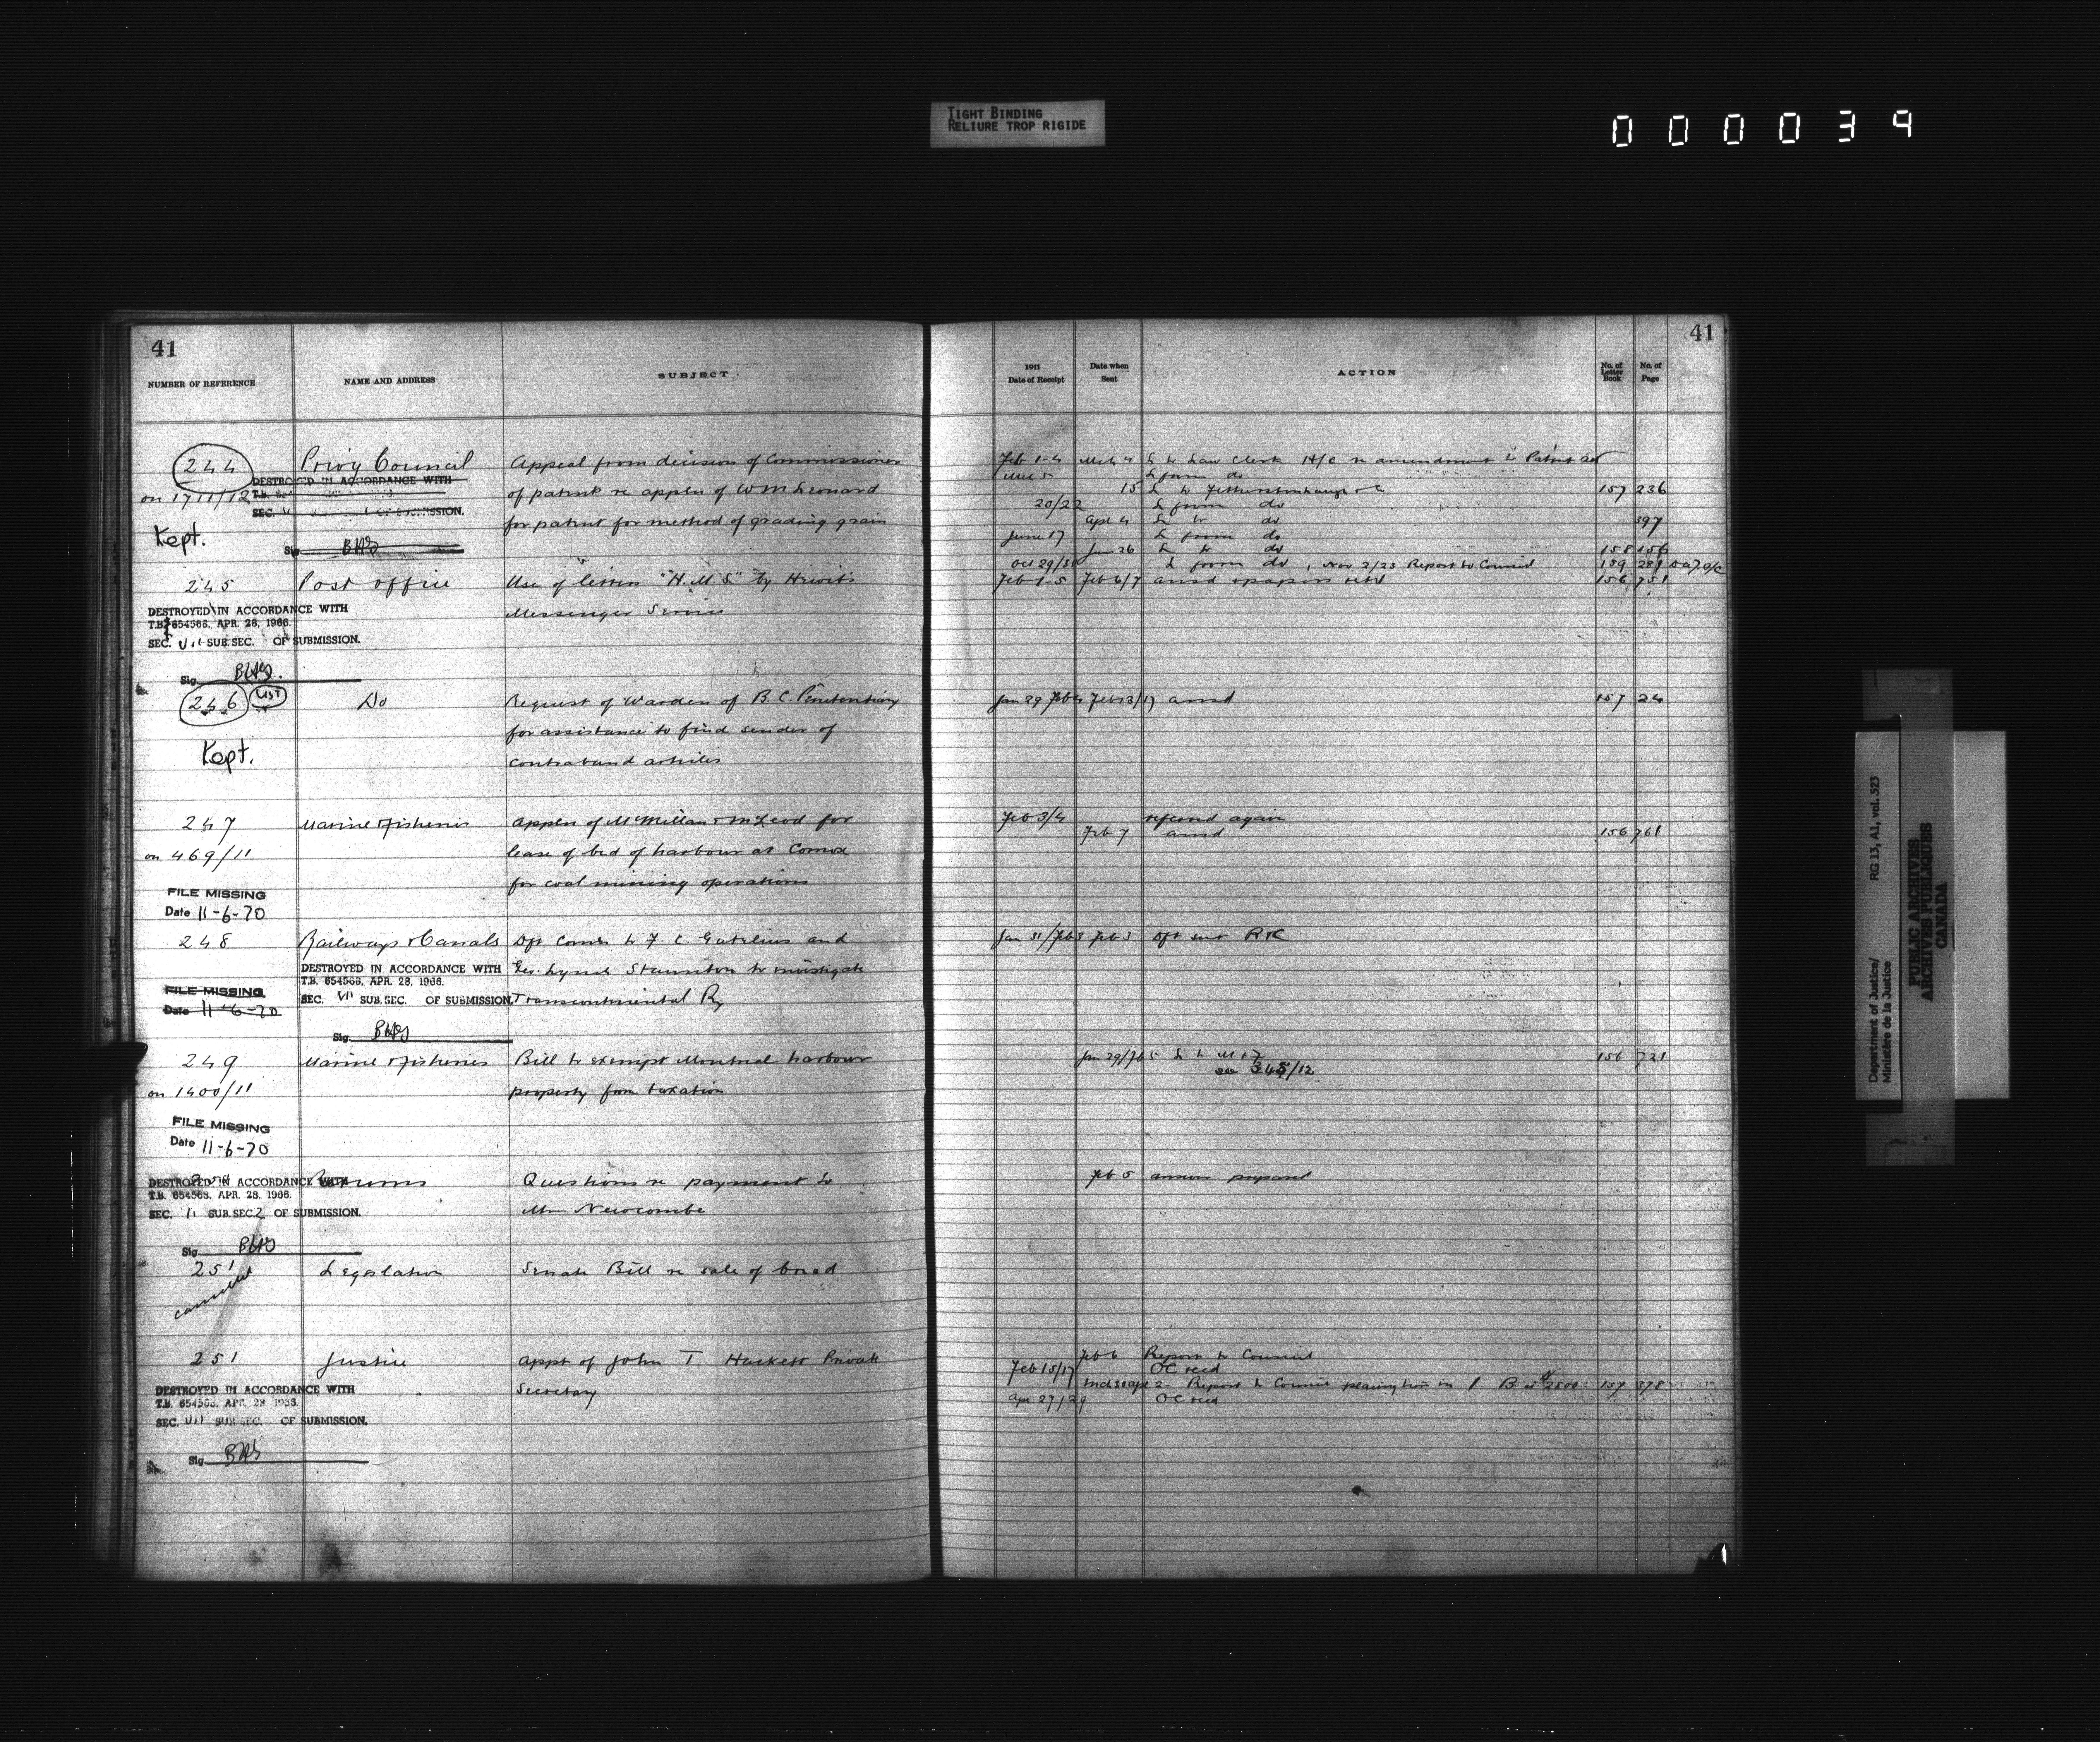 TIGHT BINDING
RELIURE TROP RIGIDE
000039
41
NUMBER OF REFERENCE NAME AND ADDRESS SUBJECT
244 Privy Council Appeal from decision of Commissioner
on 1711/12 DESTROYED IN ACCORDANCE WITH of patents re appln of WM Leonard
SEC. SUBMISSION.
Kept. for patent for method of grading grain
Sig
245 Post Office Use of letters "H.M.S." by Hewitt's
DESTROYED IN ACCORDANCE WITH Messenger Service
T.B. 654568, APR. 28, 1966.
SEC. VII SUB.SEC. OF SUBMISSION.
Sig.
246 LIST Do Request of Warden of B.C. Penitentiary
for assistance to find sender of
Kept. contraband articles
247 Marine & Fisheries Appln of McMillan & McLeod for
on 469/11 lease of bed of harbour at Comox
for coal mining operations
FILE MISSING
Date 11-6-70
248 Railways & Canals Dft Comn to F. C. Gutelius and
DESTROYED IN ACCORDANCE WITH Geo. Lynch Staunton to investigate
T.B. 654568, APR. 28, 1966.
FILE MISSING SEC. VII SUB.SEC. OF SUBMISSION. Transcontinental Ry
Date 11-6-70
Sig.
249 Marine & Fisheries Bill to exempt Montreal harbour
on 1400/11 property from taxation
FILE MISSING
Date 11-6-70
250 Returns Questions re payment to
DESTROYED IN ACCORDANCE WITH
T.B. 654568, APR. 28, 1966.
SEC. 11 SUB.SEC. 2 OF SUBMISSION. Mr Newcombe
Sig.
251 Legislation Senate Bill re sale of bread
cancelled
251 Justice Appt of John T. Hackett Private
DESTROYED IN ACCORDANCE WITH Secretary
T.B. 654568, APR. 28, 1966.
SEC. VII SUB.SEC. OF SUBMISSION.
Sig.
41
1911 Date of Receipt Date when Sent ACTION No. of Letter Book No. of Page
Feb 1-4 Mch 4 L to Law Clerk H/C re amendment to Patent Act
Mch 5 L from do
15 L to Fetherstonhaugh & Co 157 236
20/22 L from do
Apl 4 L to do 397
June 17 L from do
Jun 26 L to do 158 156
Oct 29/30 L from do, Nov 2/23 Report to Council 159 281
Feb 1-5 Feb 6/7 ansd & papers retd 156 751
Jan 29 Feb 4 Feb 13/17 ansd 157 24
Feb 3/4 referred again
Feb 7 ansd 156 761
Jan 31/Feb 3 Feb 3 Dft sent R&C
Jan 29/Feb 5 L to M & F 156 721
see 345/12
Feb 5 answer prepared
Feb 6 Report to Council
Feb 15/17 OC recd
Mch 30 Apl 2 - Report to Council placing him in 1 B at $2800 157 378
Apr 27/29 OC recd
Department of Justice/
Ministère de la Justice
RG 13, A1, vol. 523
PUBLIC ARCHIVES
ARCHIVES PUBLIQUES
CANADA